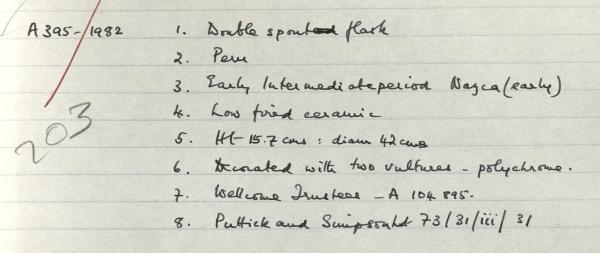 A 395-1982 1. Double spouted flask
2. Peru
3. Early Intermediate period Nazca (early)
4. Low fired ceramic
5. Ht 15.7 cms : diam 42 cms
6. Decorated with two vultures - polychrome.
7. Wellcome Trustees - A 104 895.
8. Puttick and Simpson Ltd 73/31/iii/31
203